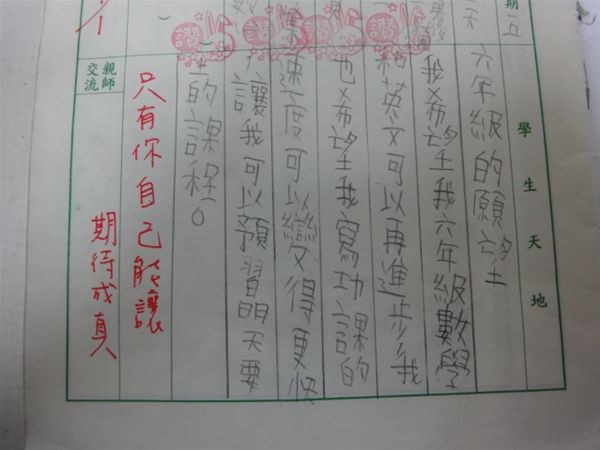 期五
學生天地
六年級的願望
我希望我六年級數學
和英文可以再進步，我
也希望我寫功課的
速度可以變得更快
讓我可以預習明天要
的課程。
親師交流
只有你自己能讓
期待成真
讚 讚 讚 讚